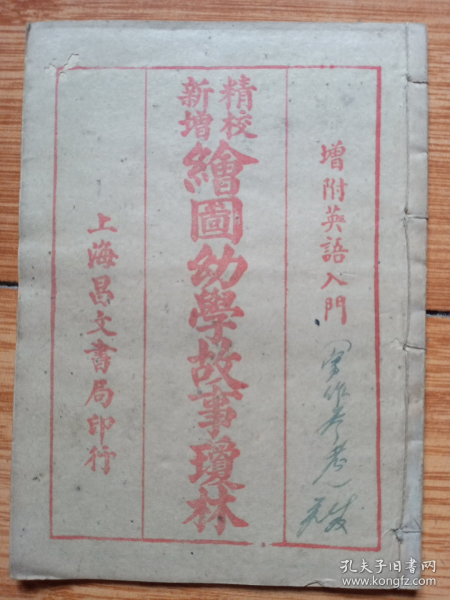 增附英語入門
精校
新增
繪圖幼學故事瓊林
上海昌文書局印行
孔夫子旧书网
www.kongfz.com